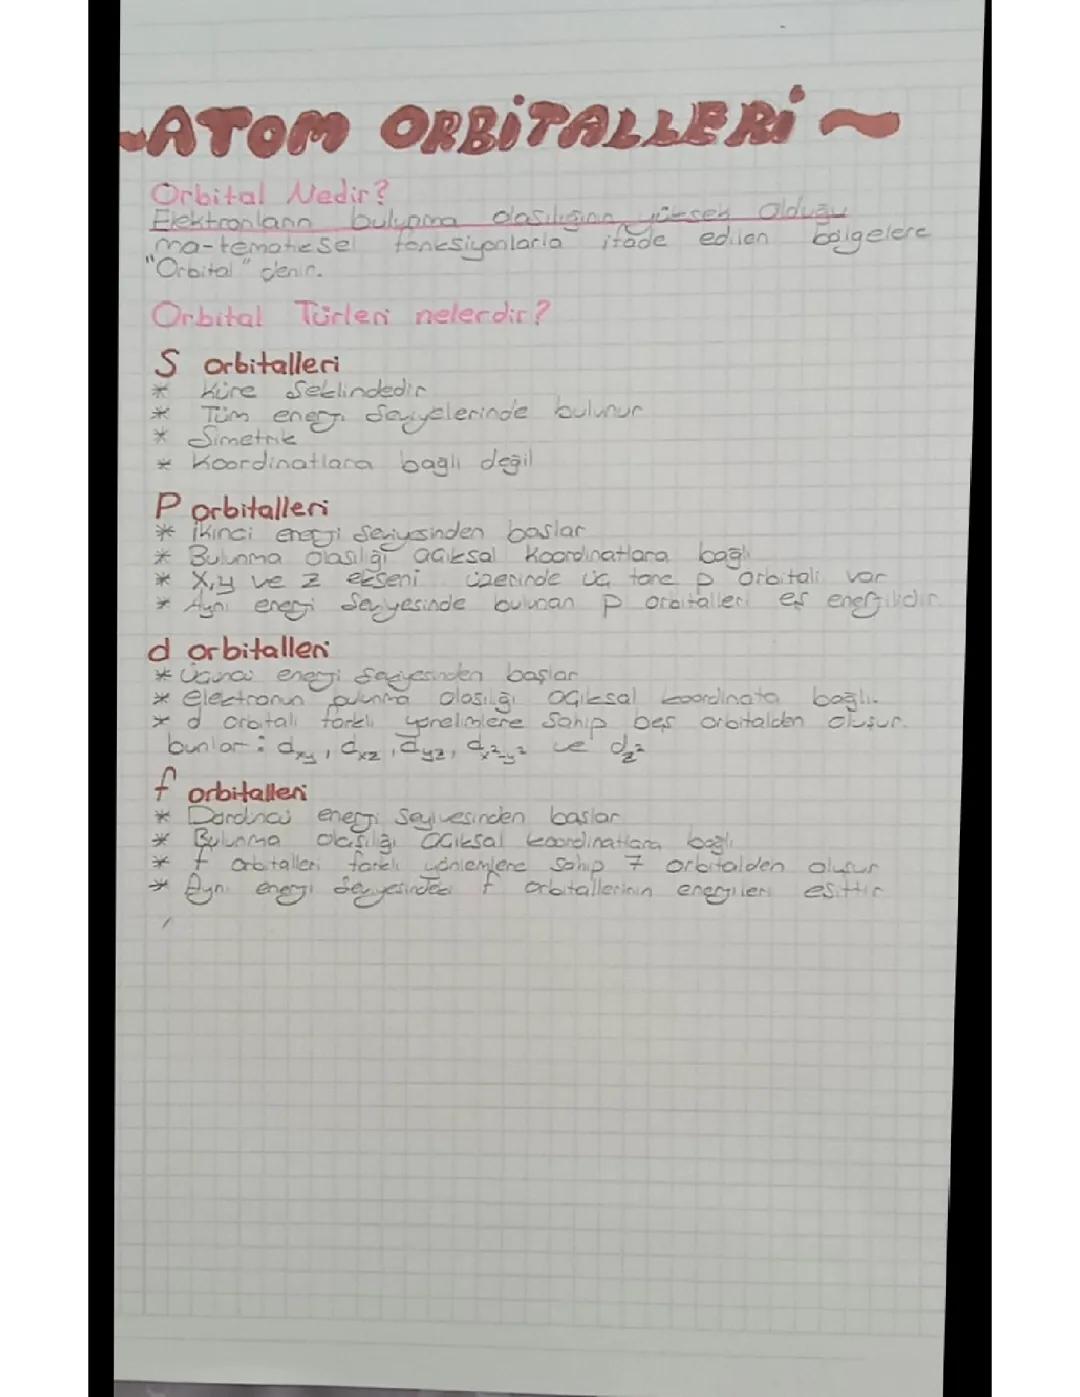 ~ATOM ORBİTALLERİ~
Orbital Nedir?
Elektronların bulunma olasılığının yüksek olduğu
ma-tematiksel fonksiyonlarla ifade edilen bölgelere
"Orbital" denir.
Orbital Türleri nelerdir?
S orbitalleri
* Küre Şeklindedir
* Tüm enerji Seviyelerinde bulunur
* Simetrik
* Koordinatlara bağlı değil
P orbitalleri
* ikinci enerji seviyesinden başlar
* Bulunma olasılığı açıksal koordinatlara bağlı
* X,y ve z ekseni üzerinde üç tane p orbitali var
* Aynı enerji Seviyesinde bulunan p orbitalleri eş enerjilidir.
d orbitalleri
* üçüncü enerji seviyesinden başlar
* elektronun bulunma olasılığı açıksal koordinata bağlı.
* d orbitali farklı yönelimlere sahip beş orbitalden oluşur.
bunlar: dxy, dxz, dyz, dx²-y² ve dz²
f orbitalleri
* Dördüncü enerji seviyesinden başlar
* Bulunma olasılığı açıksal koordinatlara bağlı
* f orbitalleri farklı yönlemlere sahip 7 orbitalden oluşur
* Aynı enerji seviyesindeki f orbitallerinin enerjileri eşittir